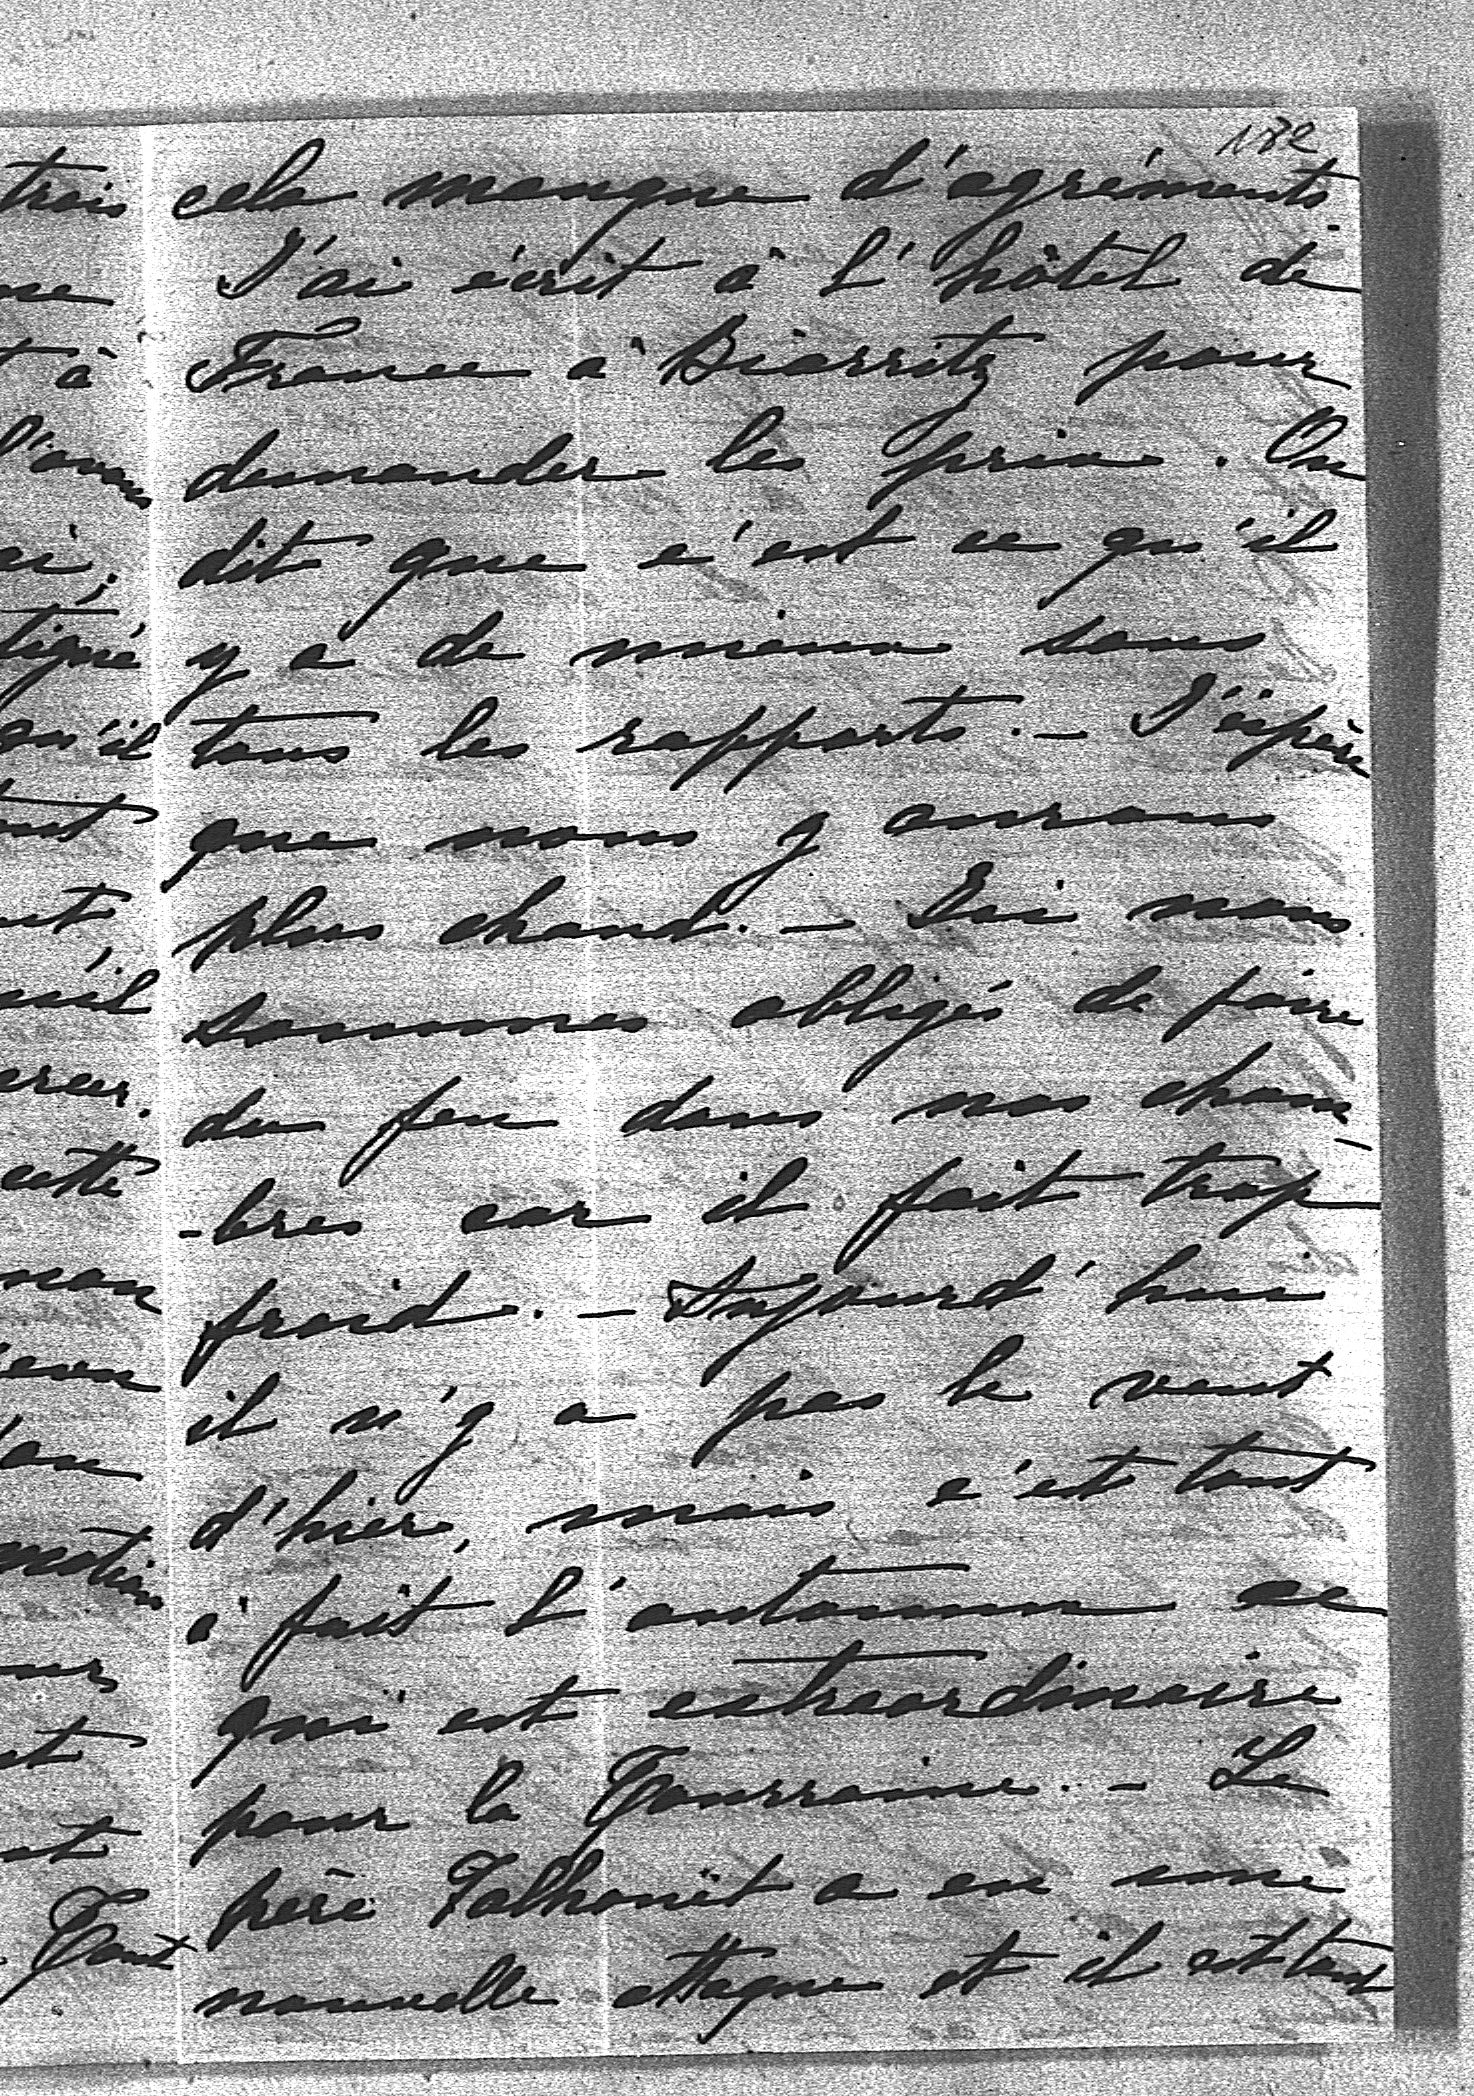 182
cela manque d'agréments.
J'ai écrit à l'hôtel de
France à Biarritz pour
demander les prix. On
dit que c'est ce qu'il
y a de mieux sous
tous les rapports. — J'éspère
que nous y aurons
plus chaud. — Ici nous
sommes obligés de faire
du feu dans nos cham-
-bres car il fait trop
froid. — Aujourd'hui
il n'y a pas le vent
d'hier, mais c'est tout
à fait l'automne ce
qui est extraordinaire
pour la Tourraine. — Le
père Falhouët a eu une
nouvelle attaque et il est tout
trois
à
qu'il
cette
Tout